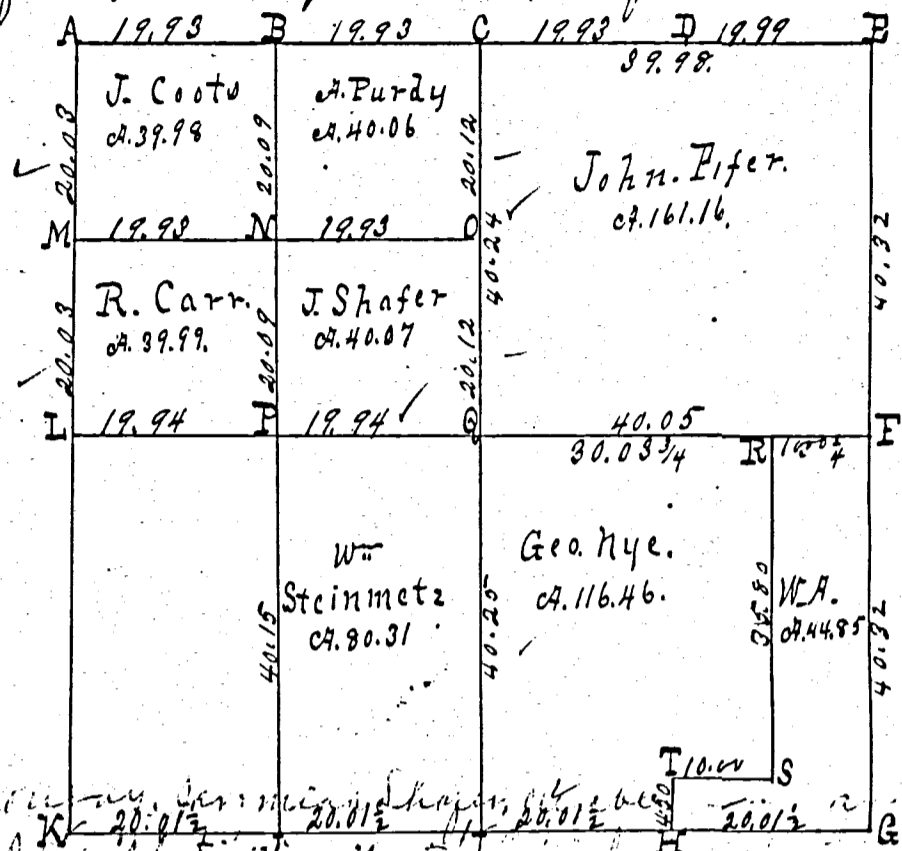 A 19.93 B 19.93 C 19.93 D 19.99 E
39.98.
J. Coots
A. 39.98
A. Purdy
A. 40.06
John. Pifer.
A. 161.16.
20.03
20.09
20.12
40.24
40.32
M 19.93 N 19.93 O
R. Carr.
A. 39.99.
J. Shafer
A. 40.07
20.03
20.09
20.12
L 19.94 P 19.94 Q 40.05 F
30.03 3/4 R
Wm
Steinmetz
A. 80.31
Geo. Nye.
A. 116.46.
W.A.
A. 44.85
40.15
40.25
35.80
40.32
T 10.00 S
4.50
K 20.01½ 20.01½ 20.01½ H 20.01½ G